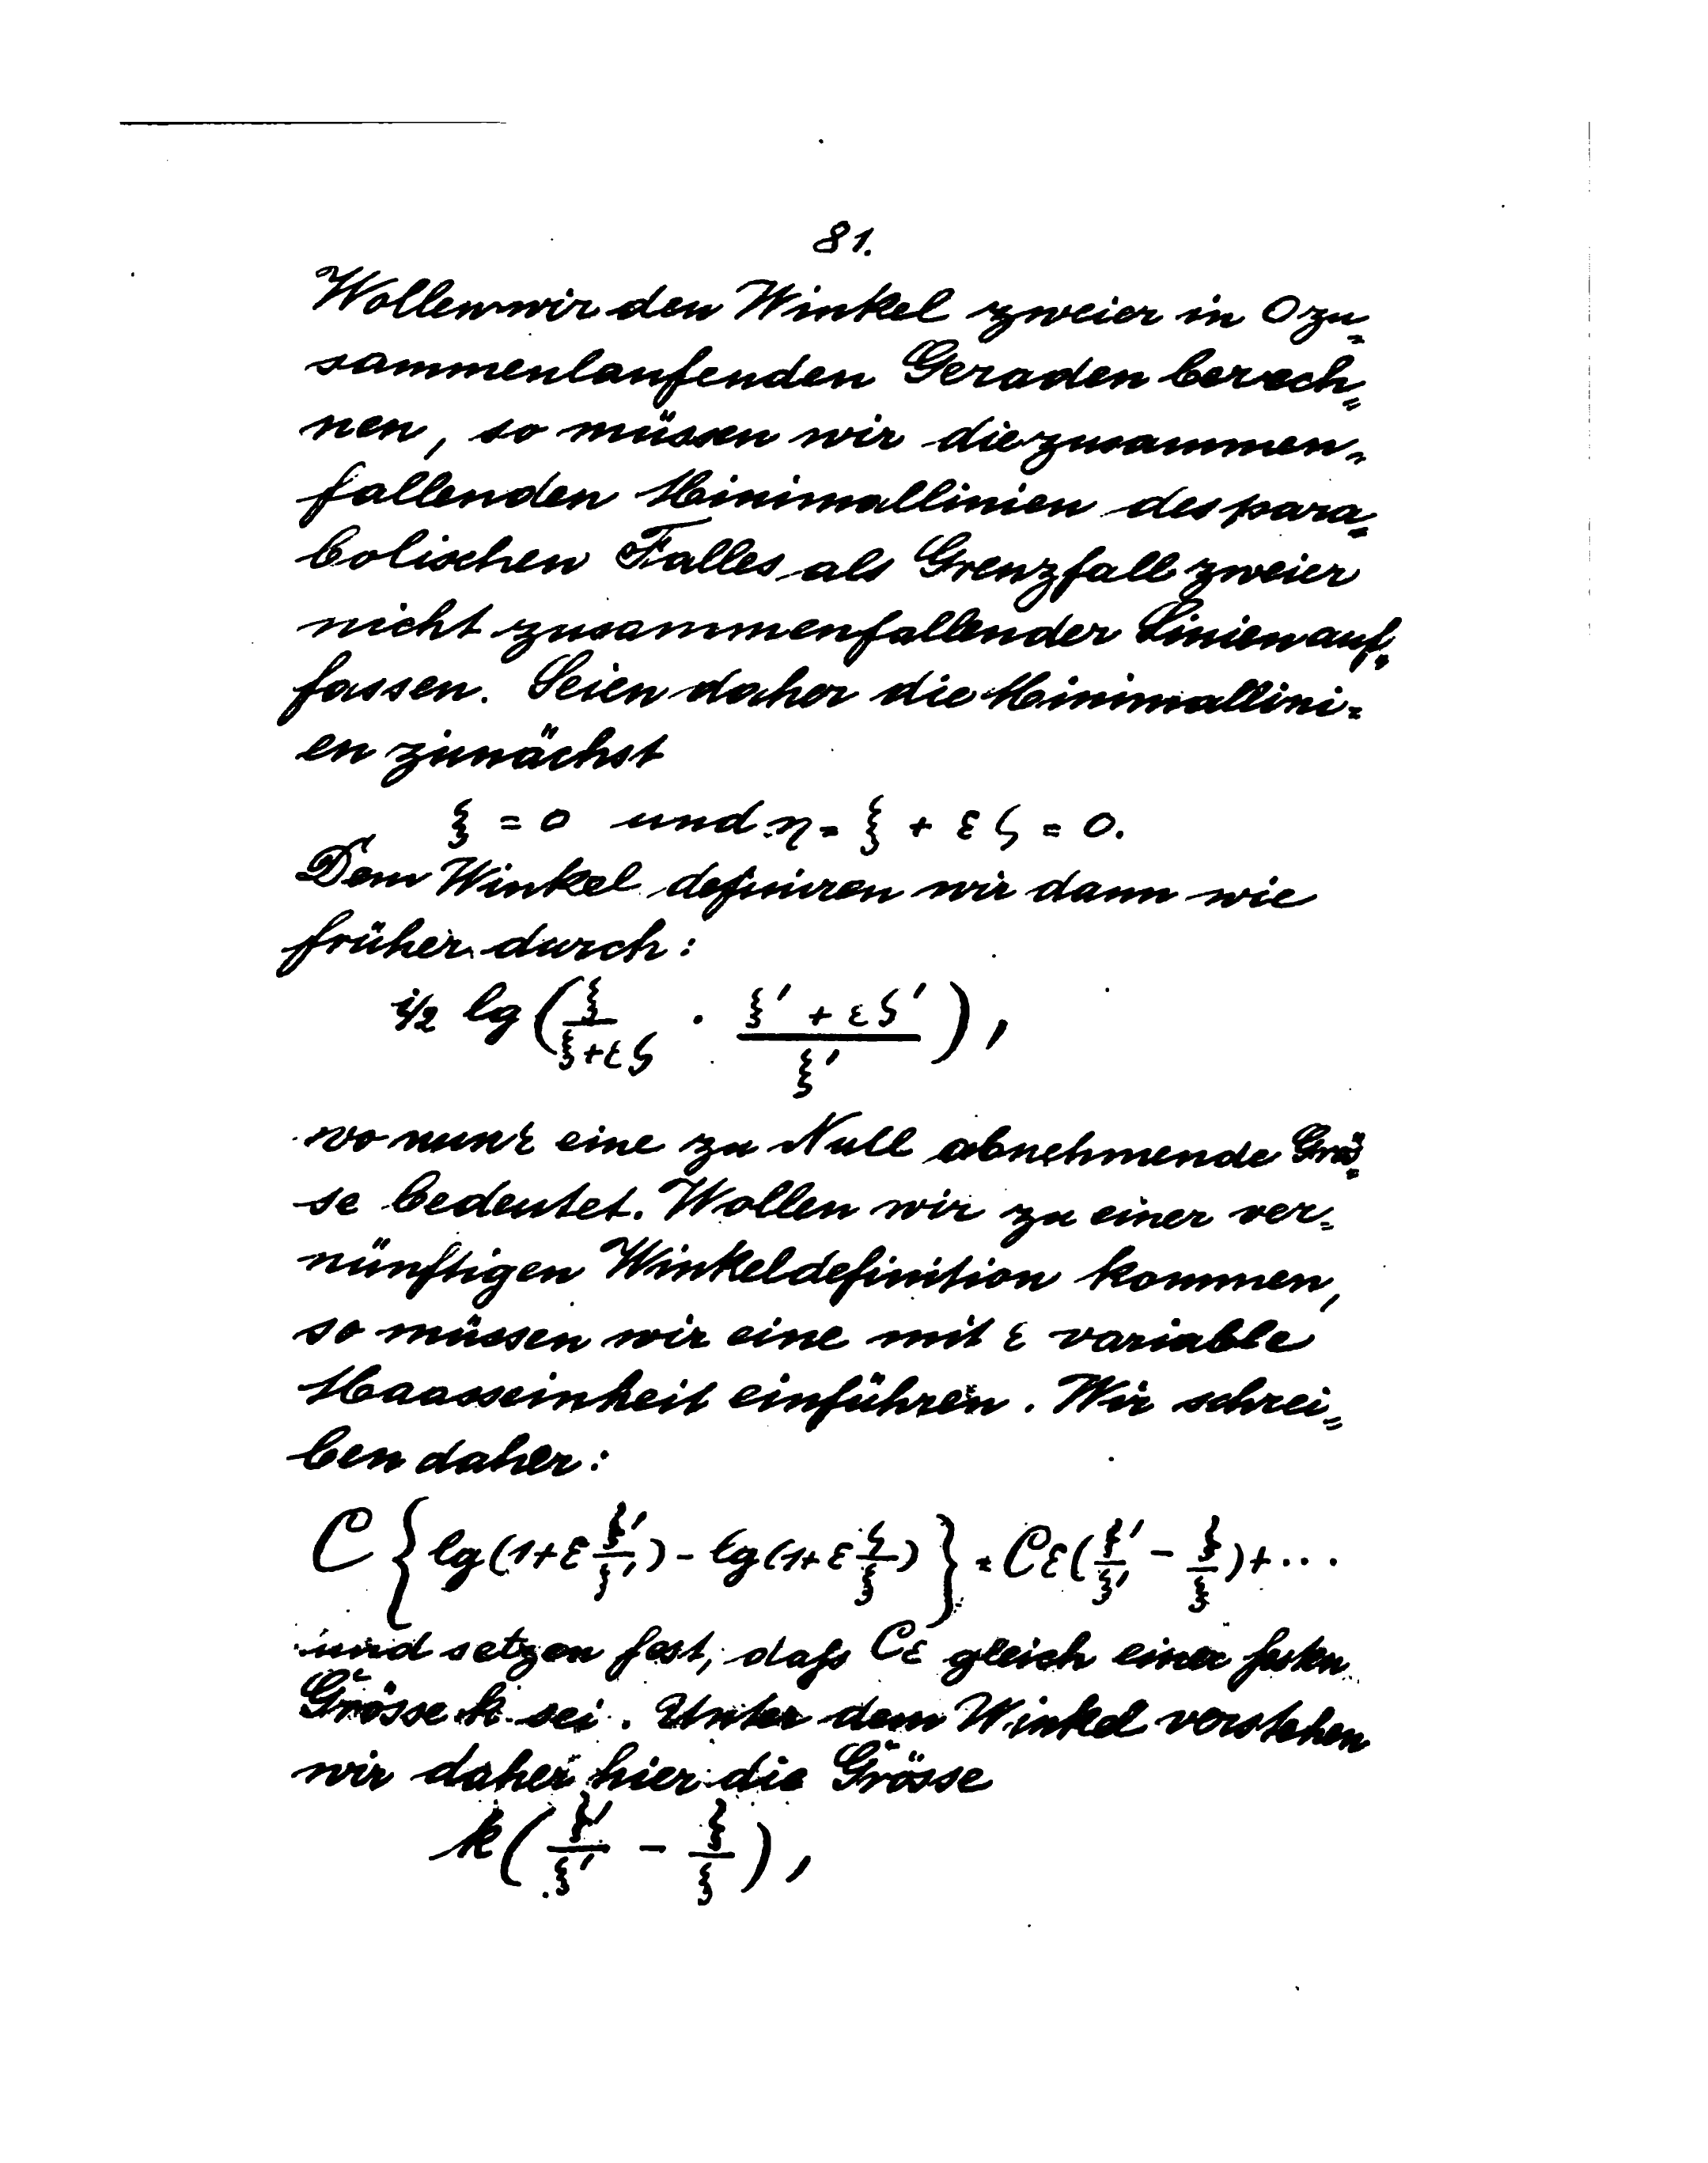 81.
Wollen wir den Winkel zweier in O zu=
sammenlaufenden Geraden berech=
nen, so müssen wir die zusammen=
fallenden Minimallinien des para=
bolischen Falles als Grenzfall zweier
nicht zusammenfallender Linien auf=
fassen. Seien daher die Minimallini=
en zunächst
ξ = 0 und η = ξ + ε ζ = 0.
Dem Winkel definiren wir dann wie
früher durch:
i/2 lg (ξ/(ξ+εζ) · (ξ' + εζ')/ξ'),
wo nun ε eine zu Null abnehmende Grö=
se bedeutet. Wollen wir zu einer ver=
nünftigen Winkeldefinition kommen,
so müssen wir eine mit ε variable
Maasseinheit einführen. Wir schrei=
ben daher:
C {lg(1+ε ζ'/ξ') - lg(1+ε ζ/ξ)} = Cε(ζ'/ξ' - ζ/ξ)+....
und setzen fest, daſs Cε gleich einer festen
Grösse k sei. Unter dem Winkel verstehen
wir daher hier die Grösse
k(ζ'/ξ' - ζ/ξ),